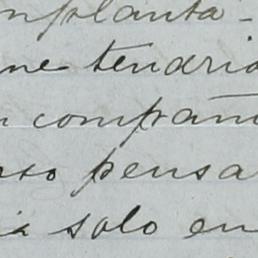 mplanta-
me tendria
compañ
pensa
solo en